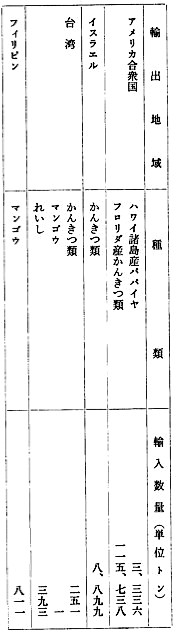 輸出地域 種類 輸入数量(単位トン)
アメリカ合衆国 ハワイ諸島産パパイヤ 三、三三六
フロリダ産かんきつ類 一一五、七三八
イスラエル かんきつ類 八、八九九
台湾 かんきつ類 二五一
マンゴウ 一
れいし 三九三
フィリピン マンゴウ 八一一